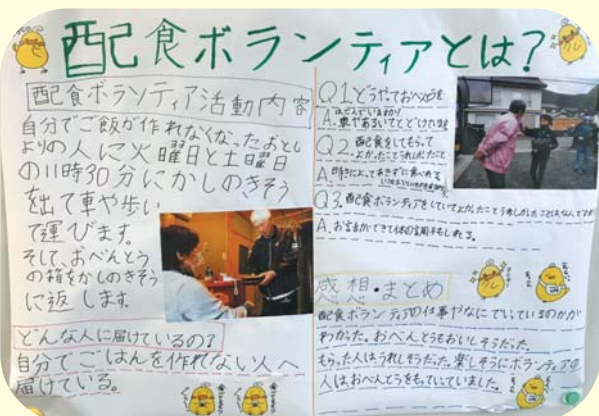 配食ボランティアとは?
配食ボランティア活動内容
自分でご飯が作れなくなったおとし
よりの人に火曜日と土曜日
の11時30分にかしのきそう
を出て車や歩い
て運びます。
そして、おべんとう
の箱をかしのきそう
に返します。
どんな人に届けているの?
自分でごはんを作れない人へ
届けている。
Q1どうやっておべんとうを
はこんでいますか
A.車やあるいてとどけたいます
Q2 配食をしてもらって
よかったことうれしかったこと
A 日にちによってあきずに食べれる
Q3 配食ボランティアをしていてよかったことうれしかったことはなんですか
A.お話ができて体の言周子もしれる。
感想・まとめ
配食ボランティアの仕事やなにでいているのかが
わかった。おべんとうもおいしそうだった。
もらった人はうれしそうだった。楽しそうにボランティアの
人はおべんとうをもっていっていました。